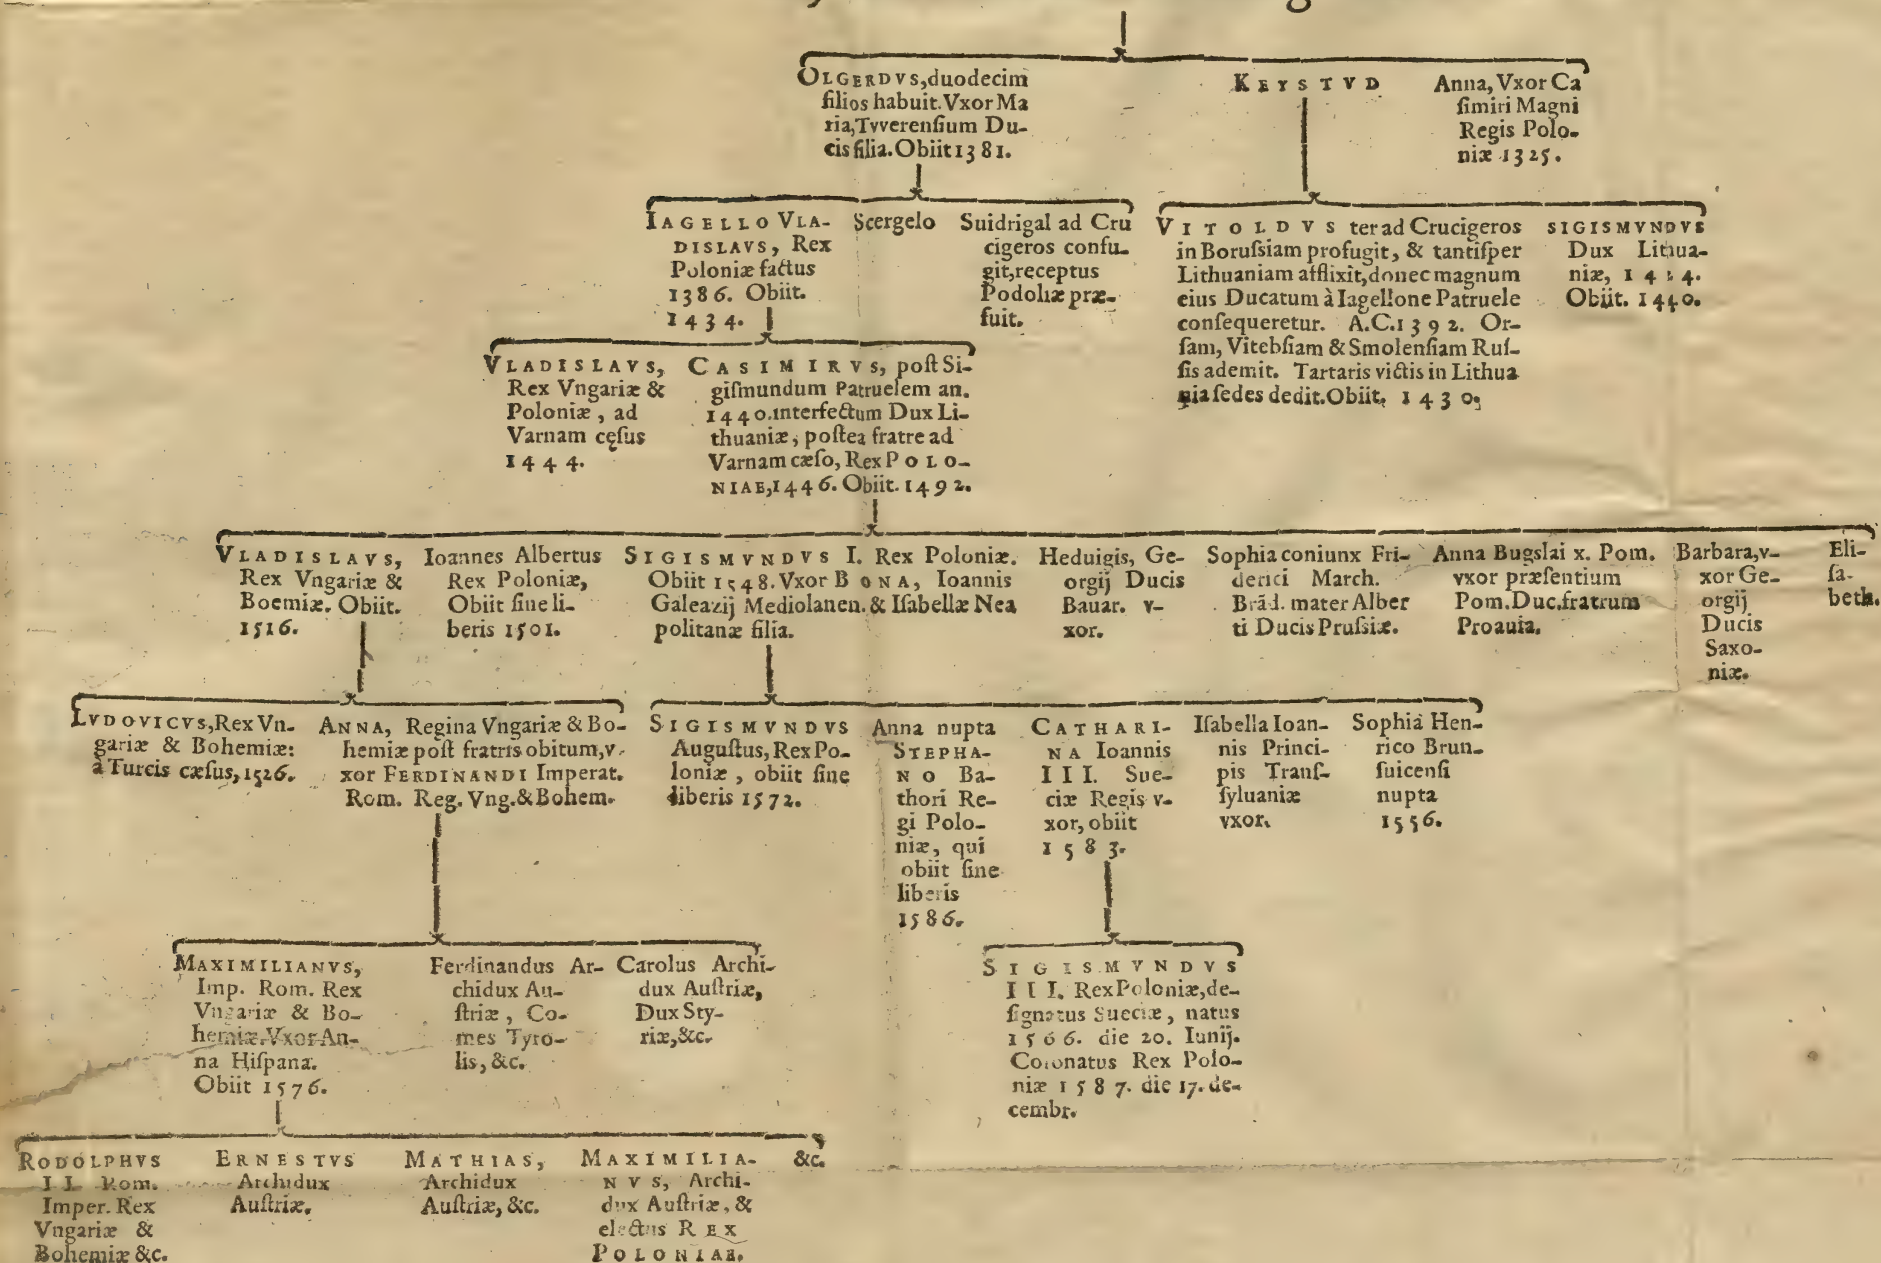 OLGERDVS, duodecim
filios habuit. Vxor Ma
ria, Tvverensium Du-
cis filia. Obiit 1381.
KEYSTVD
Anna, Vxor Ca
simiri Magni
Regis Polo-
niæ 1325.
IAGELLO VLA-
DISLAVS, Rex
Poloniæ factus
1386. Obiit.
1434.
Scergelo
Suidrigal ad Cru
cigeros confu-
git, receptus
Podoliæ præ-
fuit.
VITOLDVS ter ad Crucigeros
in Borussiam profugit, & tantisper
Lithuaniam afflixit, donec magnum
eius Ducatum à Iagellone Patruele
consequeretur. A.C. 1392. Or-
sam, Vitebsiam & Smolensiam Rus-
sis ademit. Tartaris victis in Lithua
nia sedes dedit. Obiit. 1430.
SIGISMVNDVS
Dux Lithua-
niæ,
Obiit. 1440.
VLADISLAVS,
Rex Vngariæ &
Poloniæ, ad
Varnam cęsus
1444.
CASIMIRVS, post Si-
gismundum Patruelem an.
1440. interfectum Dux Li-
thuaniæ, postea fratre ad
Varnam cæso, Rex POLO-
NIAE, 1446. Obiit. 1492.
VLADISLAVS,
Rex Vngariæ &
Boemiæ. Obiit.
1516.
Ioannes Albertus
Rex Poloniæ,
Obiit sine li-
beris 1501.
SIGISMVNDVS I. Rex Poloniæ.
Obiit 1548. Vxor BONA, Ioannis
Galeazij Mediolanen. & Isabellæ Nea
politanæ filia.
Heduigis, Ge-
orgij Ducis
Bauar. v-
xor.
Sophia coniunx Fri-
derici March.
Brãd. mater Alber
ti Ducis Prussiæ.
Anna Bugslai x. Pom.
vxor præsentium
Pom. Duc. fratrum
Proauia.
Barbara, v-
xor Ge-
orgij
Ducis
Saxo-
niæ.
Eli-
sa-
beth.
LVDOVICVS, Rex Vn-
gariæ & Bohemiæ:
à Turcis cæsus, 1526.
ANNA, Regina Vngariæ & Bo-
hemiæ post fratris obitum, v-
xor FERDINANDI Imperat.
Rom. Reg. Vng. & Bohem.
SIGISMVNDVS
Augustus, Rex Po-
loniæ, obiit sine
liberis 1572.
Anna nupta
STEPHA-
NO Ba-
thori Re-
gi Polo-
niæ, qui
obiit sine
liberis
1586.
CATHARI-
NA Ioannis
III. Sue-
ciæ Regis v-
xor, obiit
1583.
Isabella Ioan-
nis Princi-
pis Trans-
syluaniæ
vxor.
Sophia Hen-
rico Brun-
suicensi
nupta
1556.
MAXIMILIANVS,
Imp. Rom. Rex
Vngariæ & Bo-
hemiæ. Vxor An-
na Hispana.
Obiit 1576.
Ferdinandus Ar-
chidux Au-
striæ, Co-
mes Tyro-
lis, &c.
Carolus Archi-
dux Austriæ,
Dux Sty-
riæ, &c.
SIGISMVNDVS
III. Rex Poloniæ, de-
signatus Sueciæ, natus
1566. die 20. Iunij.
Coronatus Rex Polo-
niæ 1587. die 17. de-
cembr.
RODOLPHVS
II. Rom.
Imper. Rex
Vngariæ &
Bohemiæ &c.
ERNESTVS
Archidux
Austriæ.
MATHIAS,
Archidux
Austriæ, &c.
MAXIMILIA-
NVS, Archi-
dux Austriæ, &
electus REX
POLONIAE.
&c.